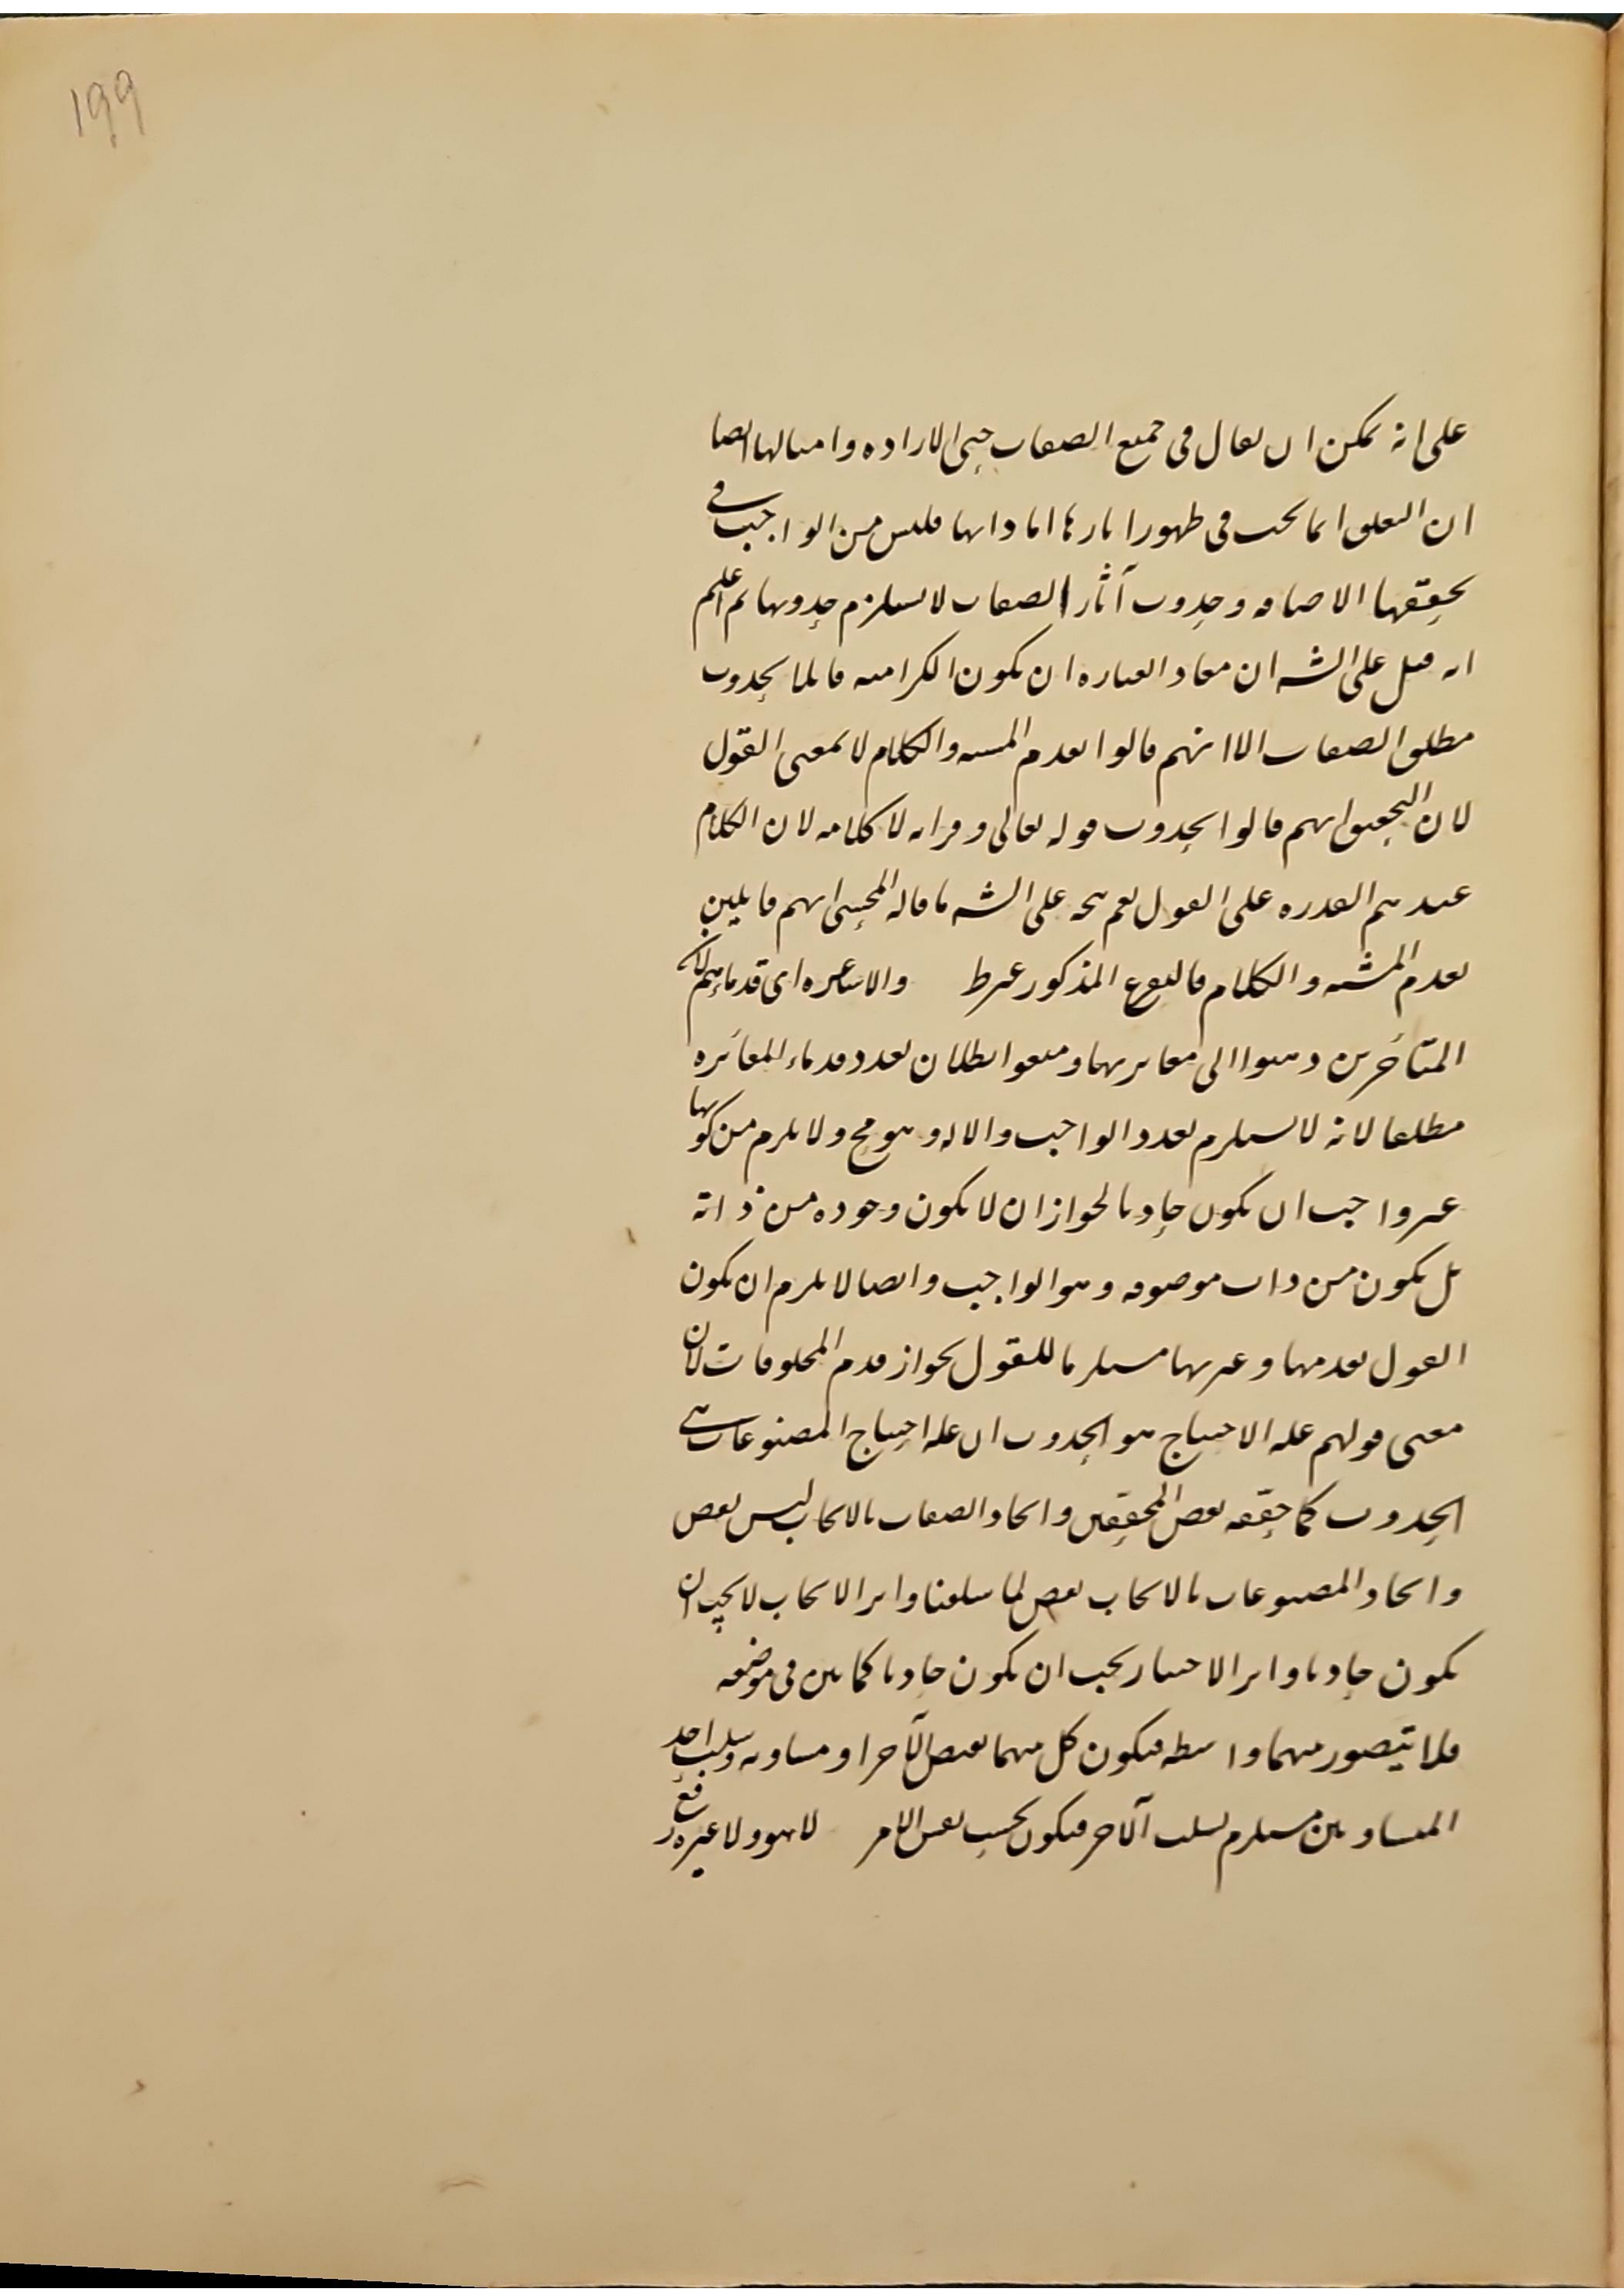 199
على انه يمكن ان يقال فى جميع الصفات حتى الارادة وامثالها ايضا
ان التعلق انما يجب فى ظهور اثارها اما ذاتها فليس من الواجب فى
تحققها الاضافة وحدوث آثار الصفات لا يستلزم حدوثها ثم اعلم
انه قيل على الشه ان مفاد العبارة ان يكون الكرامية قائلا بحدوث
مطلق الصفات الا انهم قالوا بقدم المشية والكلام لا بمعنى القول
لان التحقيق انهم قالوا بحدوث قوله تعالى وقرانه لا كلامه لان الكلام
عندهم القدرة على القول نعم يتجه على الشه ما قاله المحشى انهم قايلين
بقدم المشية والكلام فالتفريع المذكور غير ط والاشاعرة اى قدماءهم لان
المتأخرين ذهبوا الى مغايرتها ومنعوا بطلان تعدد قدماء المغائرة
مطلقا لانه لا يستلزم تعدد الواجب والاله وهو مح ولا يلزم من كونها
غير واجب ان يكون حادثا لجواز ان لا يكون وجوده من ذاته
بل يكون من ذات موصوفه وهو الواجب وايضا لا يلزم ان يكون
القول بقدمها وغيرتها مستلزما للقول بجواز قدم المخلوقات لان
معنى قولهم علة الاحتياج هو الحدوث ان علة احتياج المصنوعات هى
الحدوث كما حققه بعض المحققين وايجاد الصفات بالايجاب ليس بنقص
وايجاد المصنوعات بالايجاب نقص لما سلفنا واثر الايجاب لا يجب ان
يكون حادثا واثر الاختيار يجب ان يكون حادثا كما بين فى موضعه
فلا يتصور بينهما واسطة فيكون كل منهما نقيض الآخر او مساويه وسلب احد
المتساويين مستلزم لسلب الآخر فيكون بحسب نفس الامر لا هو ولا غيره